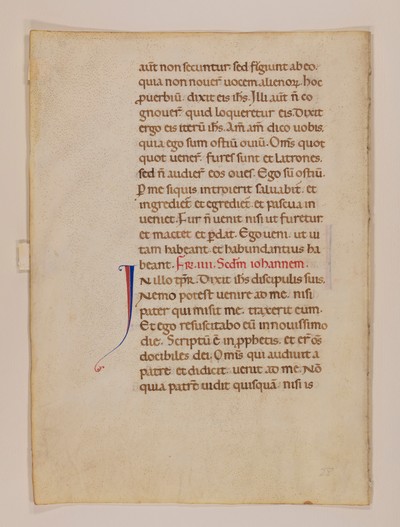 aūt non secuntur. sed fugiunt ab eo.
quia non nouer̄ uocem alienor̄. hoc
ꝓuerbiū. dixit eis ih̄s. Illi aūt n̄ co
gnouer̄ quid loqueretur eis. Dixit
ergo eis iterū ih̄s. Am̄ am̄ dico uobis.
quia ego sum ostiū ouiū. Om̄s quot
quot uener̄. fures sunt et latrones.
sed n̄ audier̄ eos oues. Ego sū ostiū.
P me siquis introierit saluabit̄. et
ingrediet̄ et egrediet̄ et pascua in
ueniet. Fur n̄ uenit nisi ut furetur
et mactet et ꝑdat. Ego ueni. ut ui
tam habeant. et habundantius ha
beant. Fr̄. iiii. Scdm̄ iohannem.
IN illo tp̄r. Dixit ih̄s discipulis suis.
Nemo potest uenire ad me. nisi
pater qui misit me. traxerit eum.
Et ego resuscitabo eū innouissimo
die. Scriptū ē in ꝓphetis. et er̄ om̄s
docibiles dei. Om̄s qui audiuit a
patre et didicit. uenit ad me. Nō
quia patrē uidit quisquā. nisi is